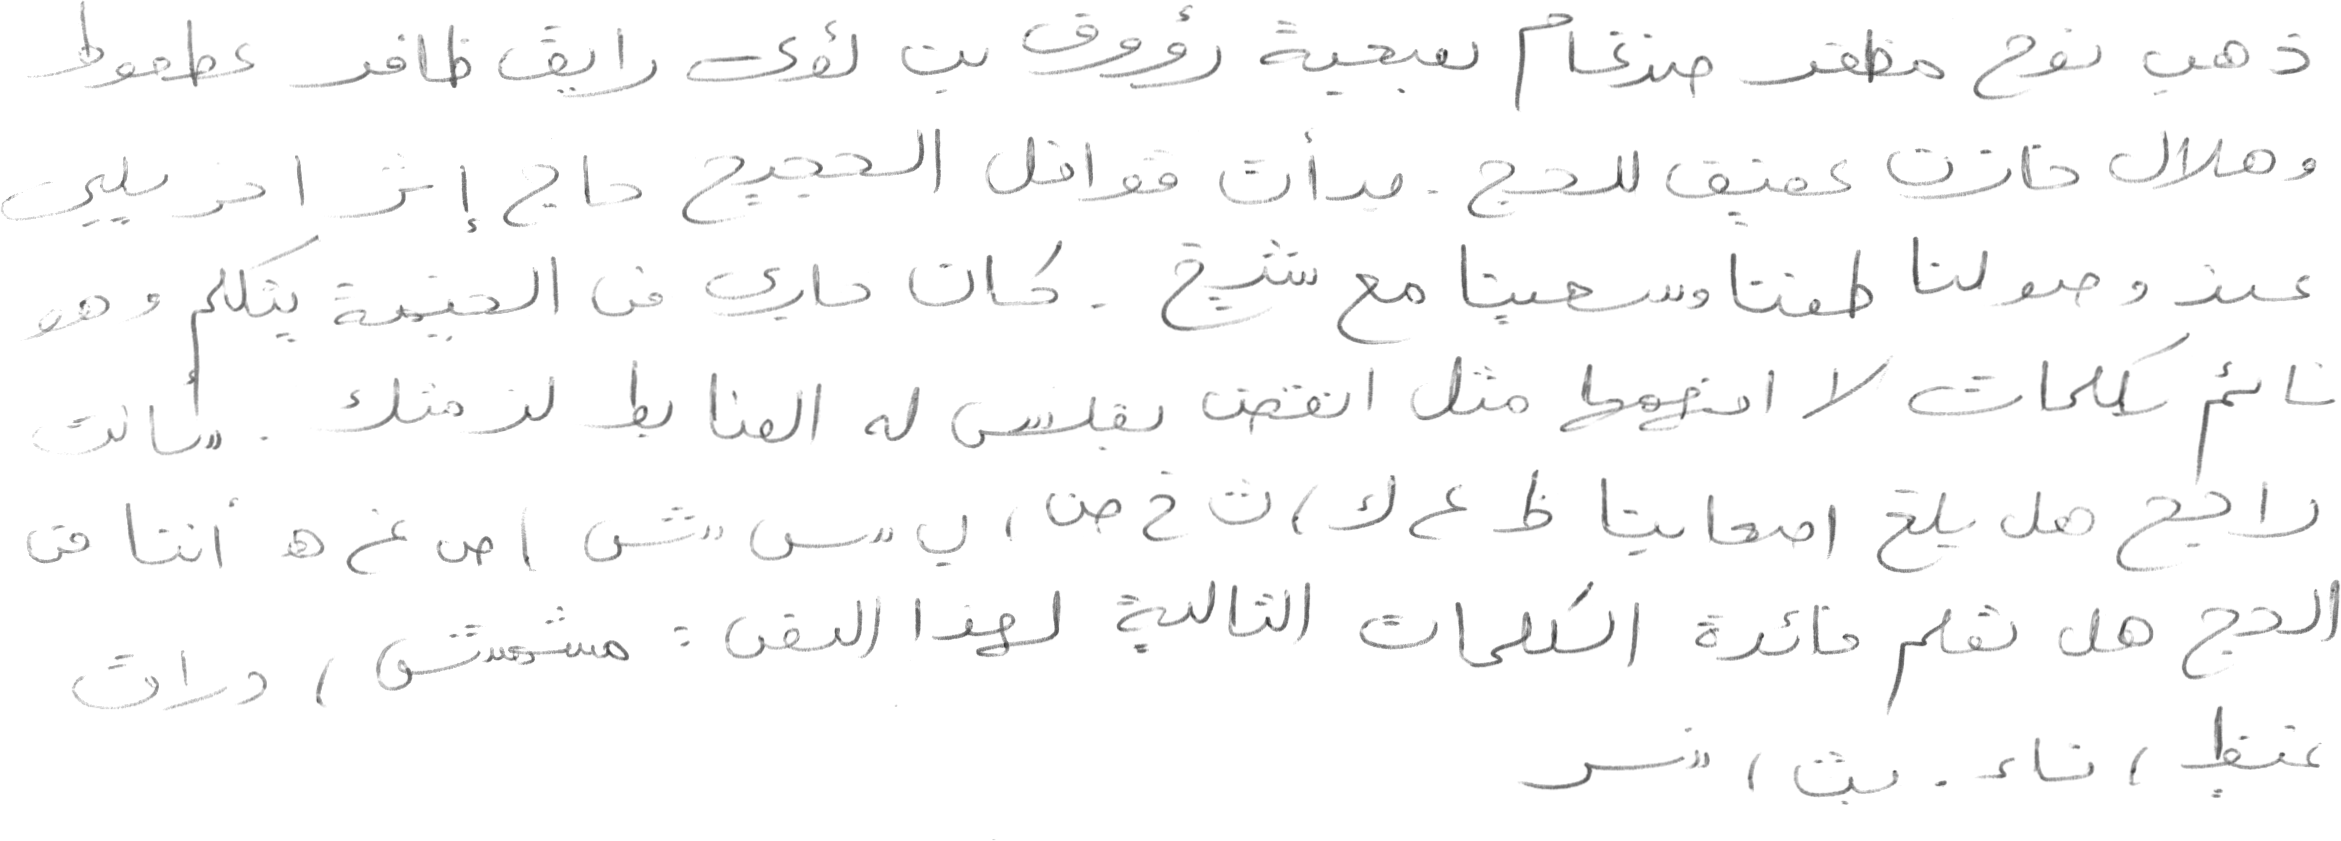 ذهب نوح مظفر ضرغام بصحبة رؤوف بن لؤى رايق ظافر عطعوط
وهلال حازن عفيف للحج . بدأت قوافل الحجيج حاج إثر اخر يلبى
عند وصولنا طفنا وسعينا مع شريح . كان حارى فى الخيمة يتكلم وهو
نائم كلمات لا افهمها مثل انقض بقلس له الضابط لزمتك . سألت
راجح هل بلغ اصحابنا ظ ع ك ، ث خ ض ، ب س ش ، ص غ ه أننا فى
الحج هل تعلم فائدة الكلمات التالية لهذا النص : مشمش ، درات
غيظ ، تاء . بث ، نسر